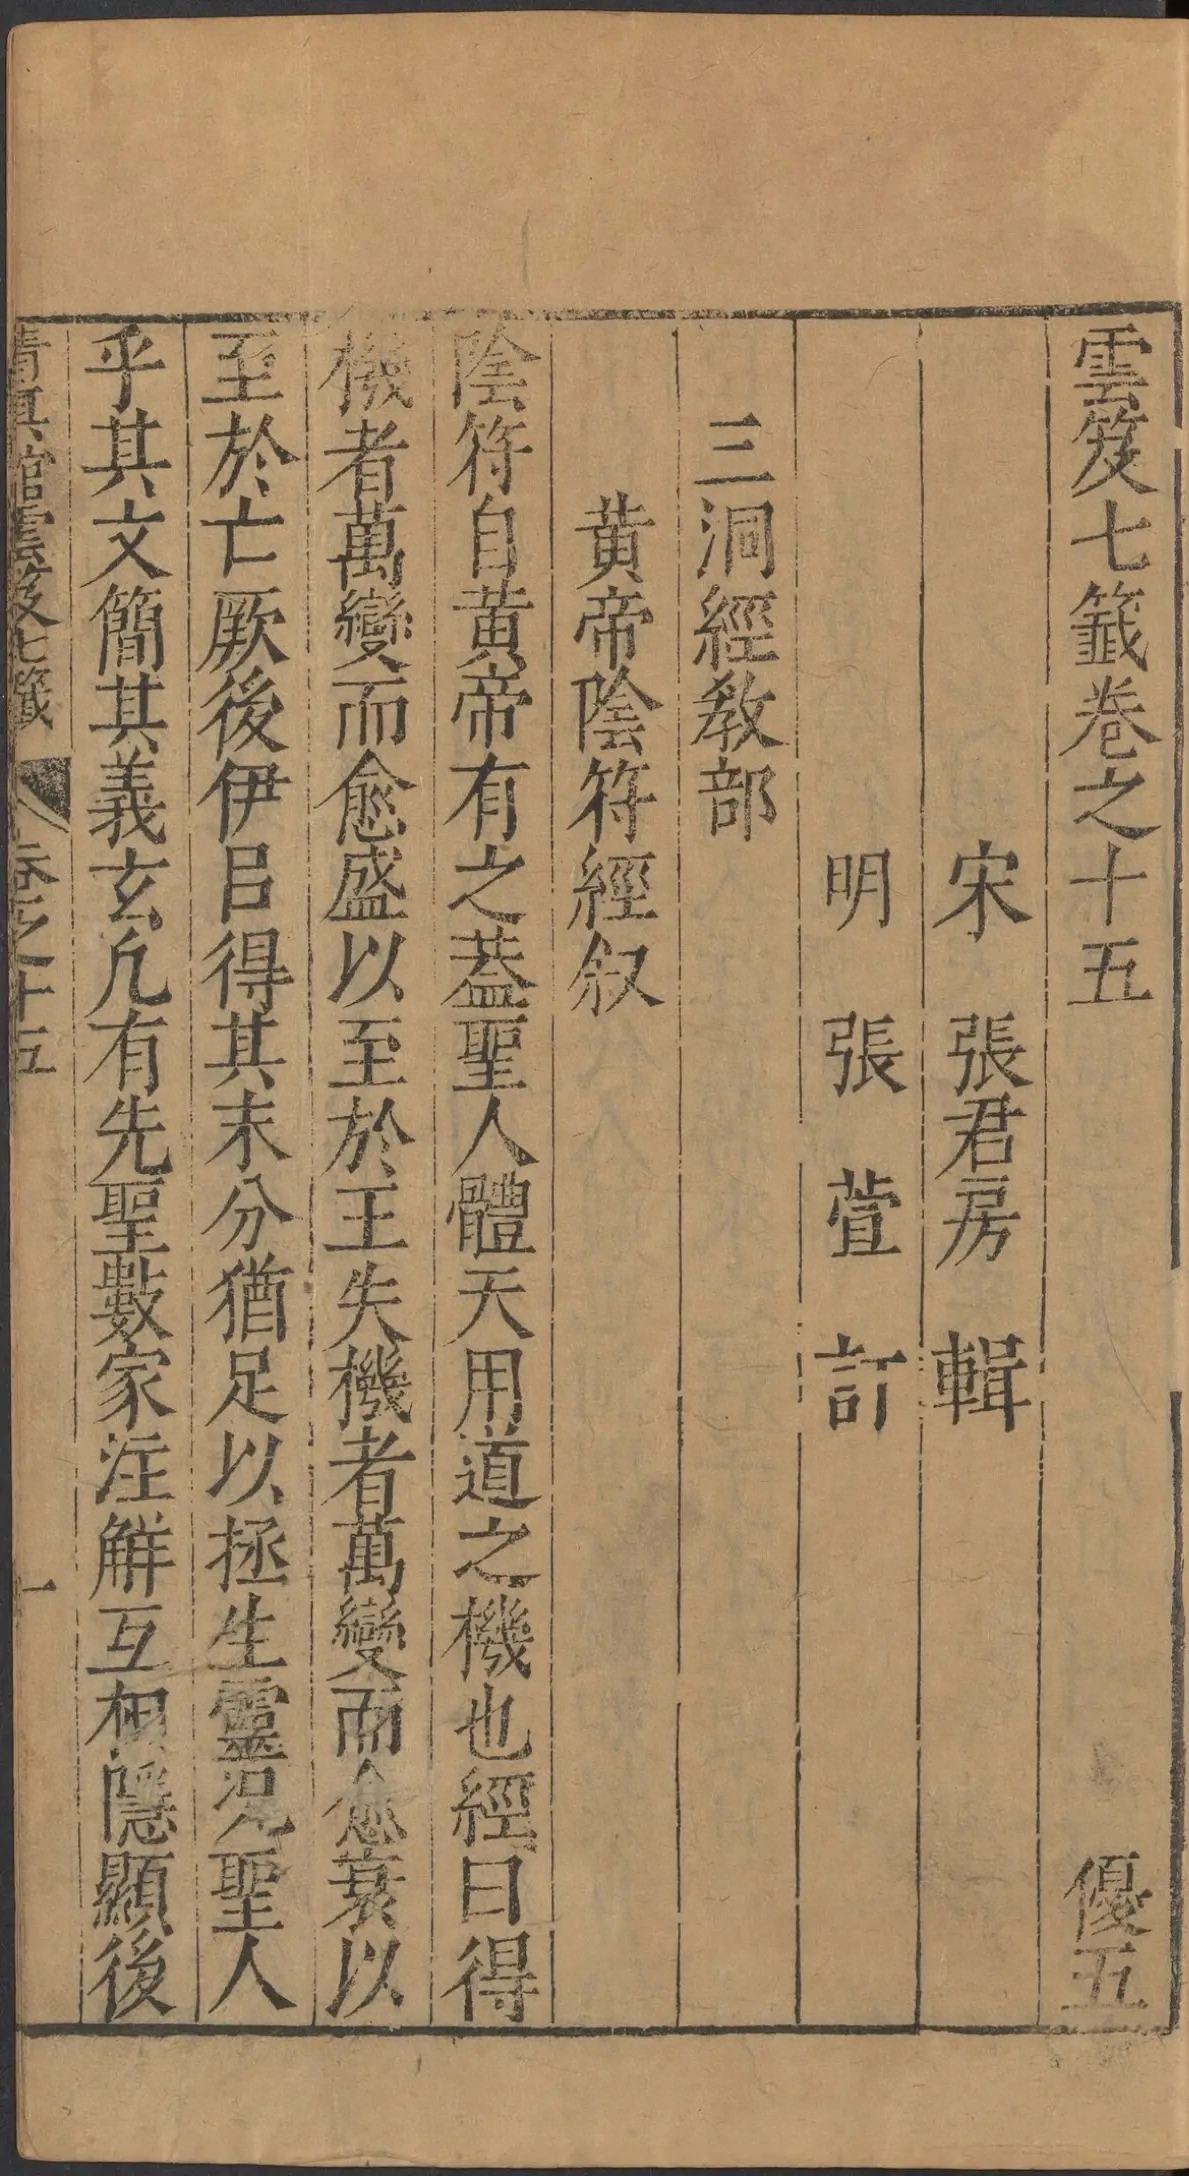 雲笈七籤卷之十五 優五
宋 張君房 輯
明 張 萱 訂
三洞經教部
黃帝陰符經叙
陰符自黃帝有之蓋聖人體天用道之機也經曰得
機者萬變而愈盛以至於王失機者萬變而愈衰以
至於亡厥後伊呂得其末分猶足以拯生靈況聖人
乎其文簡其義玄凢有先聖數家注解互相隱顯後
清真館雲笈七籤 卷之十五 一